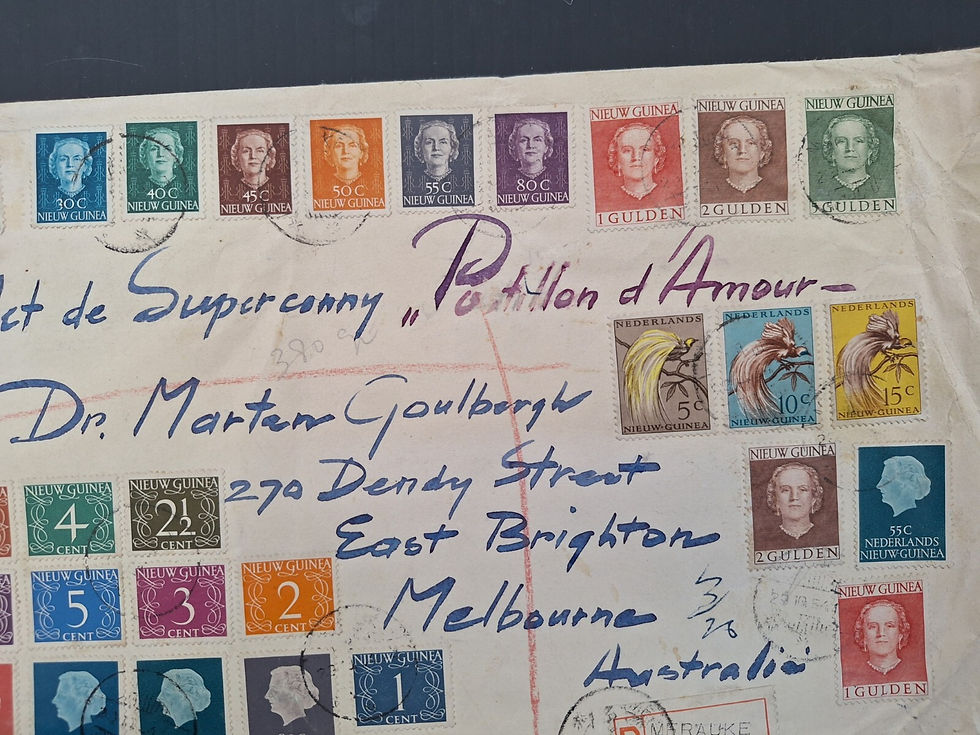 30 C NIEUW GUINEA
40 C NIEUW GUINEA
45 C NIEUW GUINEA
50 C NIEUW GUINEA
55 C NIEUW GUINEA
80 C NIEUW GUINEA
NIEUW GUINEA 1 GULDEN
NIEUW GUINEA 2 GULDEN
NIEUW GUINEA 5 GULDEN
de Superconny „Postillon d'Amour-
380
NEDERLANDS 5 C NIEUW-GUINEA
NEDERLANDS 10 C NIEUW-GUINEA
NEDERLANDS 15 C NIEUW-GUINEA
Dr. Marten Goulbergh
270 Dendy Street
East Brighton
Melbourne
Australia
NIEUW GUINEA 2 GULDEN
55 C NEDERLANDS NIEUW-GUINEA
NIEUW GUINEA 1 GULDEN
NIEUW GUINEA 4 CENT
NIEUW GUINEA 2½ CENT
NIEUW GUINEA 5 CENT
NIEUW GUINEA 3 CENT
NIEUW GUINEA 2 CENT
NIEUW GUINEA 1 CENT
R MERAUKE